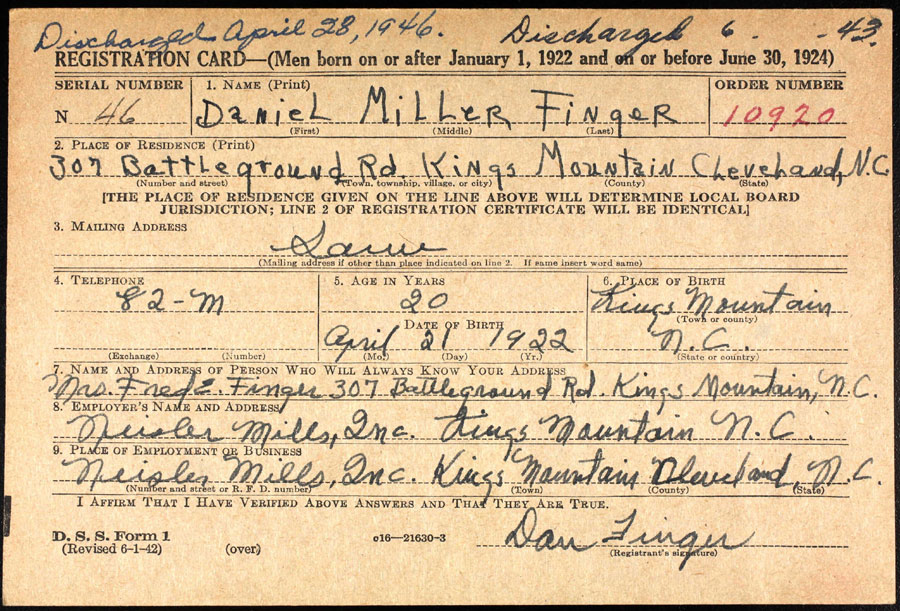 Discharged April 28, 1946. Discharged 6 - -43.
REGISTRATION CARD—(Men born on or after January 1, 1922 and on or before June 30, 1924)
SERIAL NUMBER 1. NAME (Print) ORDER NUMBER
N 46 Daniel Miller Finger 10920
(First) (Middle) (Last)
2. PLACE OF RESIDENCE (Print)
307 Battleground Rd. Kings Mountain Cleveland, N.C.
(Number and street) (Town, township, village, or city) (County) (State)
[THE PLACE OF RESIDENCE GIVEN ON THE LINE ABOVE WILL DETERMINE LOCAL BOARD
JURISDICTION; LINE 2 OF REGISTRATION CERTIFICATE WILL BE IDENTICAL]
3. MAILING ADDRESS
Same
(Mailing address if other than place indicated on line 2. If same insert word same)
4. TELEPHONE 5. AGE IN YEARS 6. PLACE OF BIRTH
82-M 20 Kings Mountain
DATE OF BIRTH (Town or county)
April 21 1922 N.C.
(Exchange) (Number) (Mo.) (Day) (Yr.) (State or country)
7. NAME AND ADDRESS OF PERSON WHO WILL ALWAYS KNOW YOUR ADDRESS
Mrs. Fred E. Finger 307 Battleground Rd. Kings Mountain, N.C.
8. EMPLOYER'S NAME AND ADDRESS
Neisler Mills, Inc. Kings Mountain N.C.
9. PLACE OF EMPLOYMENT OR BUSINESS
Neisler Mills, Inc. Kings Mountain Cleveland, N.C.
(Number and street or R. F. D. number) (Town) (County) (State)
I AFFIRM THAT I HAVE VERIFIED ABOVE ANSWERS AND THAT THEY ARE TRUE.
D. S. S. Form 1
(Revised 6-1-42) (over) c16—21630-3 Dan Finger
(Registrant's signature)